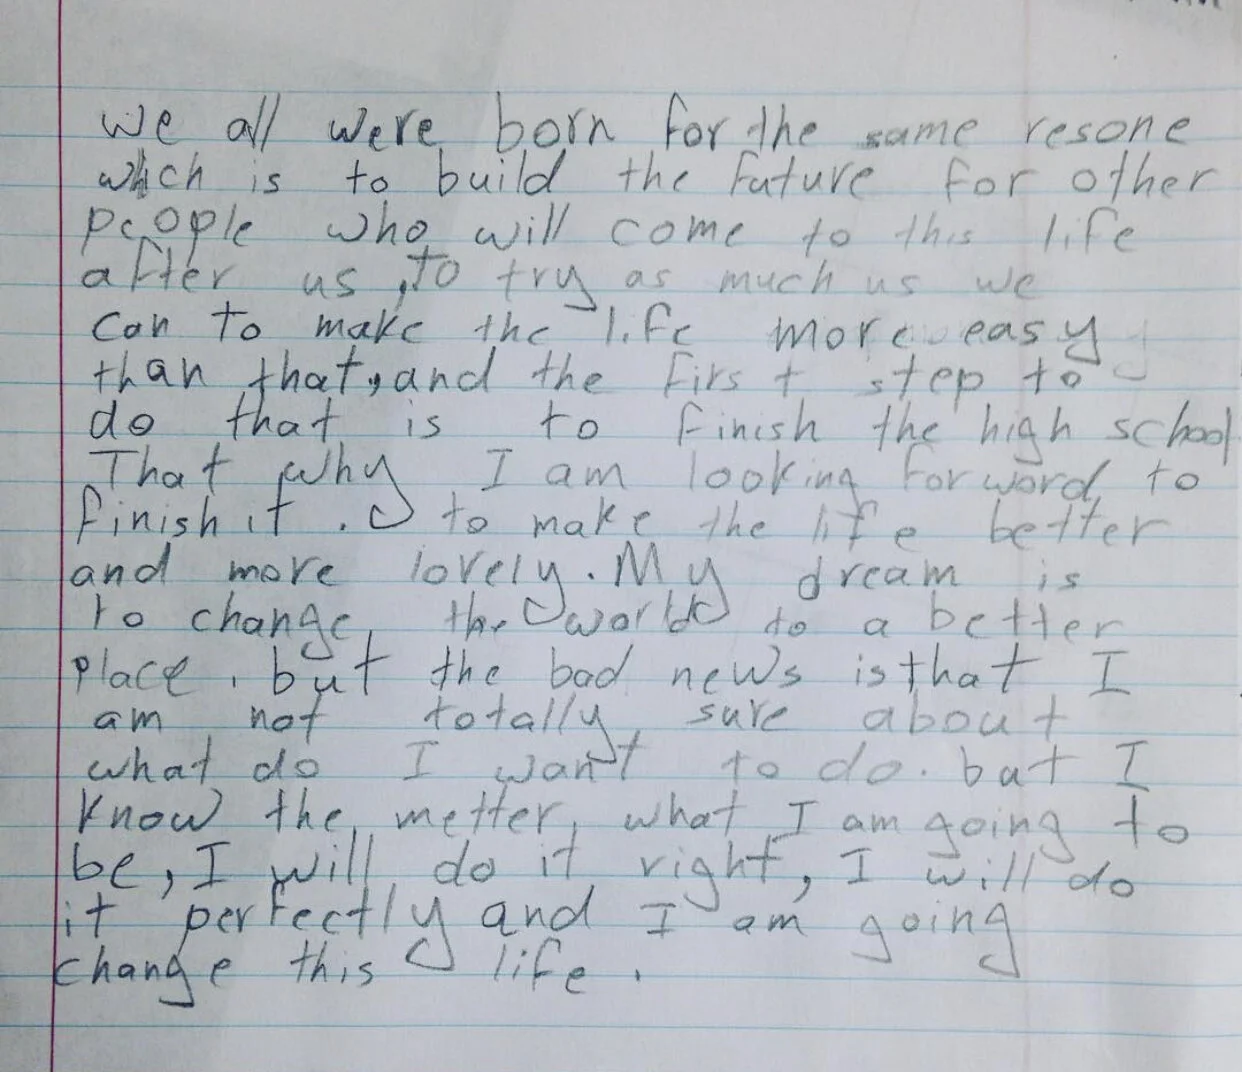 we all were born for the same resone
which is to build the future for other
people who will come to this life
after us, to try as much us we
can to make the life more easy
than that, and the first step to
do that is to finish the high school
That why I am looking forword to
finish it. to make the life better
and more lovely. My dream is
to change the world to a better
place. but the bad news is that I
am not totally sure about
what do I want to do. bat I
know the metter, what I am going to
be, I will do it right, I will do
it perfectly and I am going
change this life.